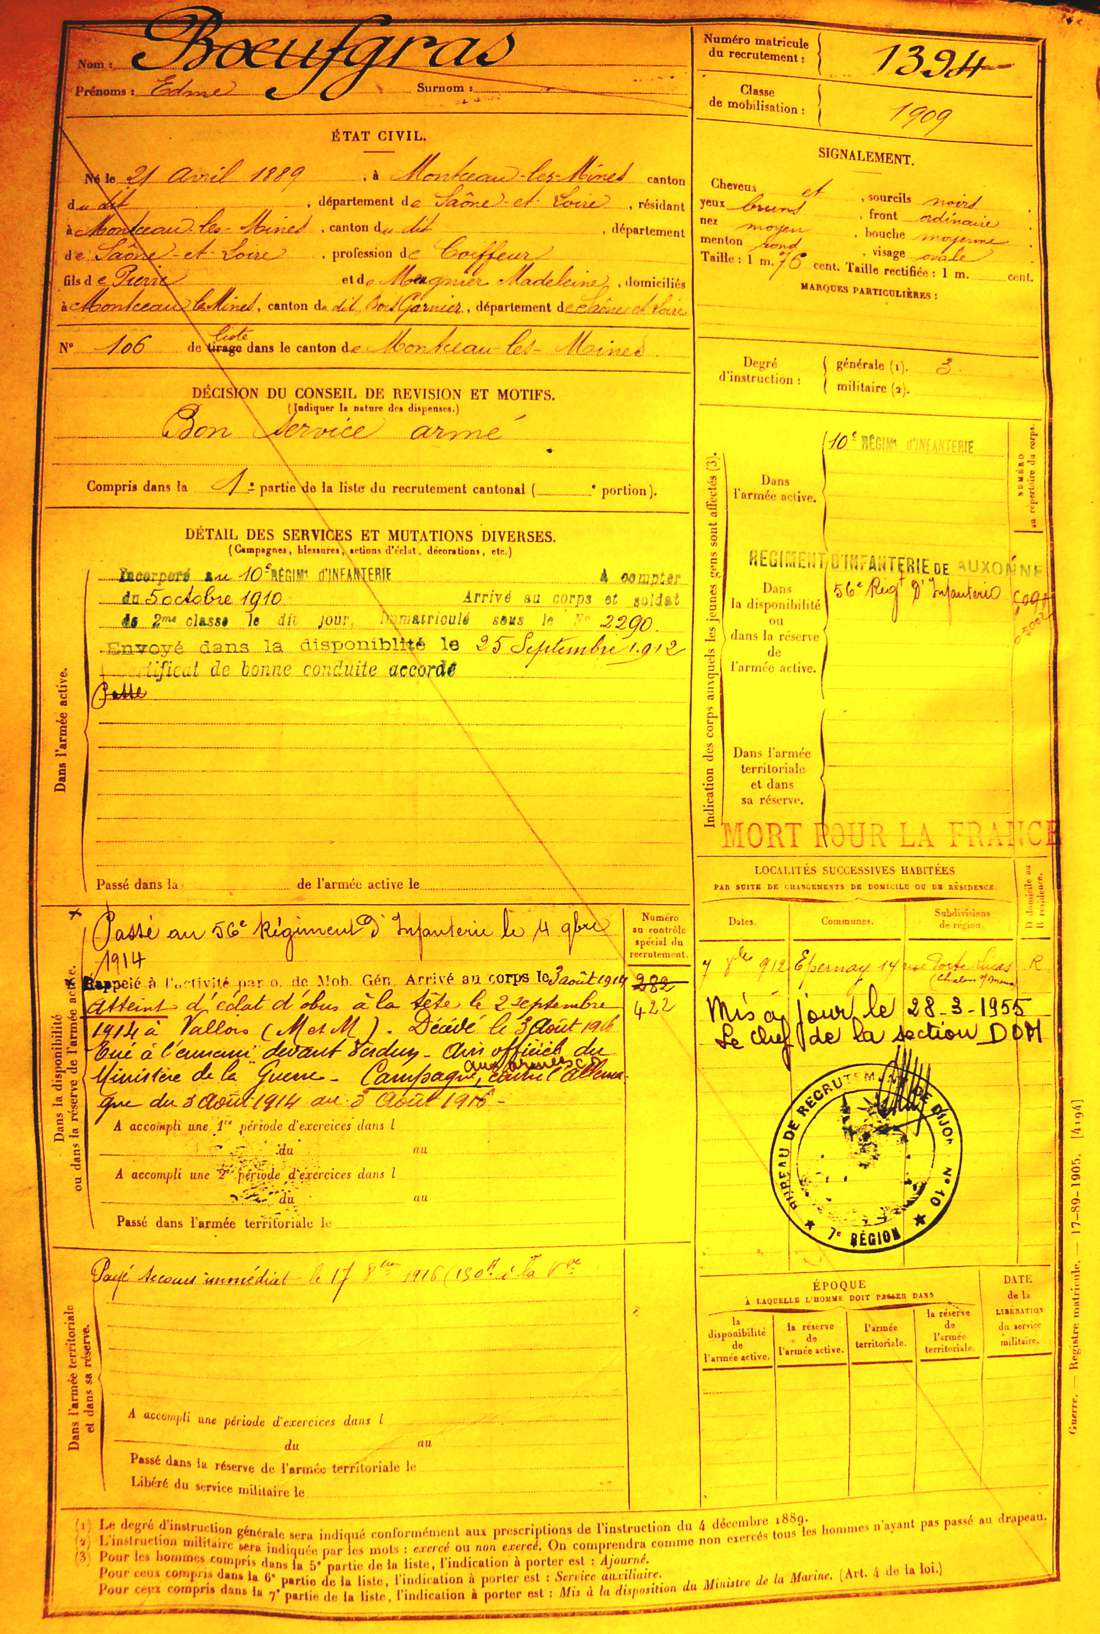 Nom : Bœufgras
Prénoms : Edme Surnom :
ÉTAT CIVIL.
Né le 21 avril 1889, à Montceau-les-Mines canton
du dit, département de Saône-et-Loire, résidant
à Montceau-les-Mines, canton du dit, département
de Saône-et-Loire, profession de Coiffeur
fils de Pierre et de Magnier Madeleine, domiciliés
à Montceau les Mines, canton de dit, Bois Garnier, département de Saône et Loire
N° 106 de tirage liste dans le canton de Montceau-les-Mines.
DÉCISION DU CONSEIL DE REVISION ET MOTIFS.
(Indiquer la nature des dispenses.)
Bon service armé
Compris dans la 1e partie de la liste du recrutement cantonal ( e portion).
DÉTAIL DES SERVICES ET MUTATIONS DIVERSES.
(Campagnes, blessures, actions d'éclat, décorations, etc.)
Dans l'armée active.
Incorporé au 10e RÉGIMt D'INFANTERIE à compter
du 5 octobre 1910 Arrivé au corps et soldat
de 2me classe le dit jour, immatriculé sous le No 2290.
Envoyé dans la disponiblité le 25 Septembre 1912
tificat de bonne conduite accordé
Passé
Passé dans la de l'armée active le
Dans la disponibilité
ou dans la réserve de l'armée active.
Passé au 56e Régiment d'Infanterie le 4 9bre
1914
Rappelé à l'activité par o. de Mob. Gén. Arrivé au corps le 3 août 1914
Atteint d'éclat d'obus à la tête le 2 septembre
1914 à Vallois (M et M). Décédé le 3 Août 1916
Tué à l'ennemi devant Verdun - Avis officiel du
Ministère de la Guerre - Campagne, aux armées contre l'Allema-
gne du 3 Août 1914 au 3 Août 1916 -
A accompli une 1re période d'exercices dans l
du au
A accompli une 2e période d'exercices dans l
du au
Passé dans l'armée territoriale le
Numéro
au contrôle
spécial du
recrutement.
282
422
Dans l'armée territoriale
et dans sa réserve.
Payé secours immédiat le 17 8bre 1916 (150f à la Vve
A accompli une période d'exercices dans l
du au
Passé dans la réserve de l'armée territoriale le
Libéré du service militaire le
Numéro matricule
du recrutement : 1394
Classe
de mobilisation : 1909
SIGNALEMENT.
Cheveux et, sourcils noirs
yeux bruns, front ordinaire
nez moyen, bouche moyenne
menton rond, visage ovale
Taille : 1 m. 76 cent. Taille rectifiée : 1 m. cent.
MARQUES PARTICULIÈRES :
Degré
d'instruction : générale (1). 3
militaire (2).
Indication des corps auxquels les jeunes gens sont affectés (3).
NUMÉRO
au répertoire du corps.
Dans
l'armée active.
10e RÉGIMt D'INFANTERIE
REGIMENT D'INFANTERIE DE AUXONNE
Dans
la disponibilité
ou
dans la réserve
de
l'armée active.
56e Régt d'Infanterie
Dans l'armée
territoriale
et dans
sa réserve.
MORT POUR LA FRANCE
LOCALITÉS SUCCESSIVES HABITÉES
PAR SUITE DE CHANGEMENTS DE DOMICILE OU DE RÉSIDENCE.
Dates. Communes. Subdivisions
de région. D domicile ou
R résidence.
7 8bre 912 Epernay 14 rue Porte Lucas R
Mis à jour le 28-3-1955
Le chef de la section DOM
BUREAU DE RECRUTEMENT DE DIJON N°10
7e RÉGION
ÉPOQUE
À LAQUELLE L'HOMME DOIT PASSER DANS
la
disponibilité
de
l'armée active.
la réserve
de
l'armée active.
l'armée
territoriale.
la réserve
de
l'armée
territoriale.
DATE
de la
LIBÉRATION
du service
militaire.
Guerre. — Registre matricule. — 17-89-1905. [4194]
(1) Le degré d'instruction générale sera indiqué conformément aux prescriptions de l'instruction du 4 décembre 1889.
(2) L'instruction militaire sera indiquée par les mots : exercé ou non exercé. On comprendra comme non exercés tous les hommes n'ayant pas passé au drapeau.
(3) Pour les hommes compris dans la 5e partie de la liste, l'indication à porter est : Ajourné.
Pour ceux compris dans la 6e partie de la liste, l'indication à porter est : Service auxiliaire.
Pour ceux compris dans la 7e partie de la liste, l'indication à porter est : Mis à la disposition du Ministre de la Marine. (Art. 4 de la loi.)